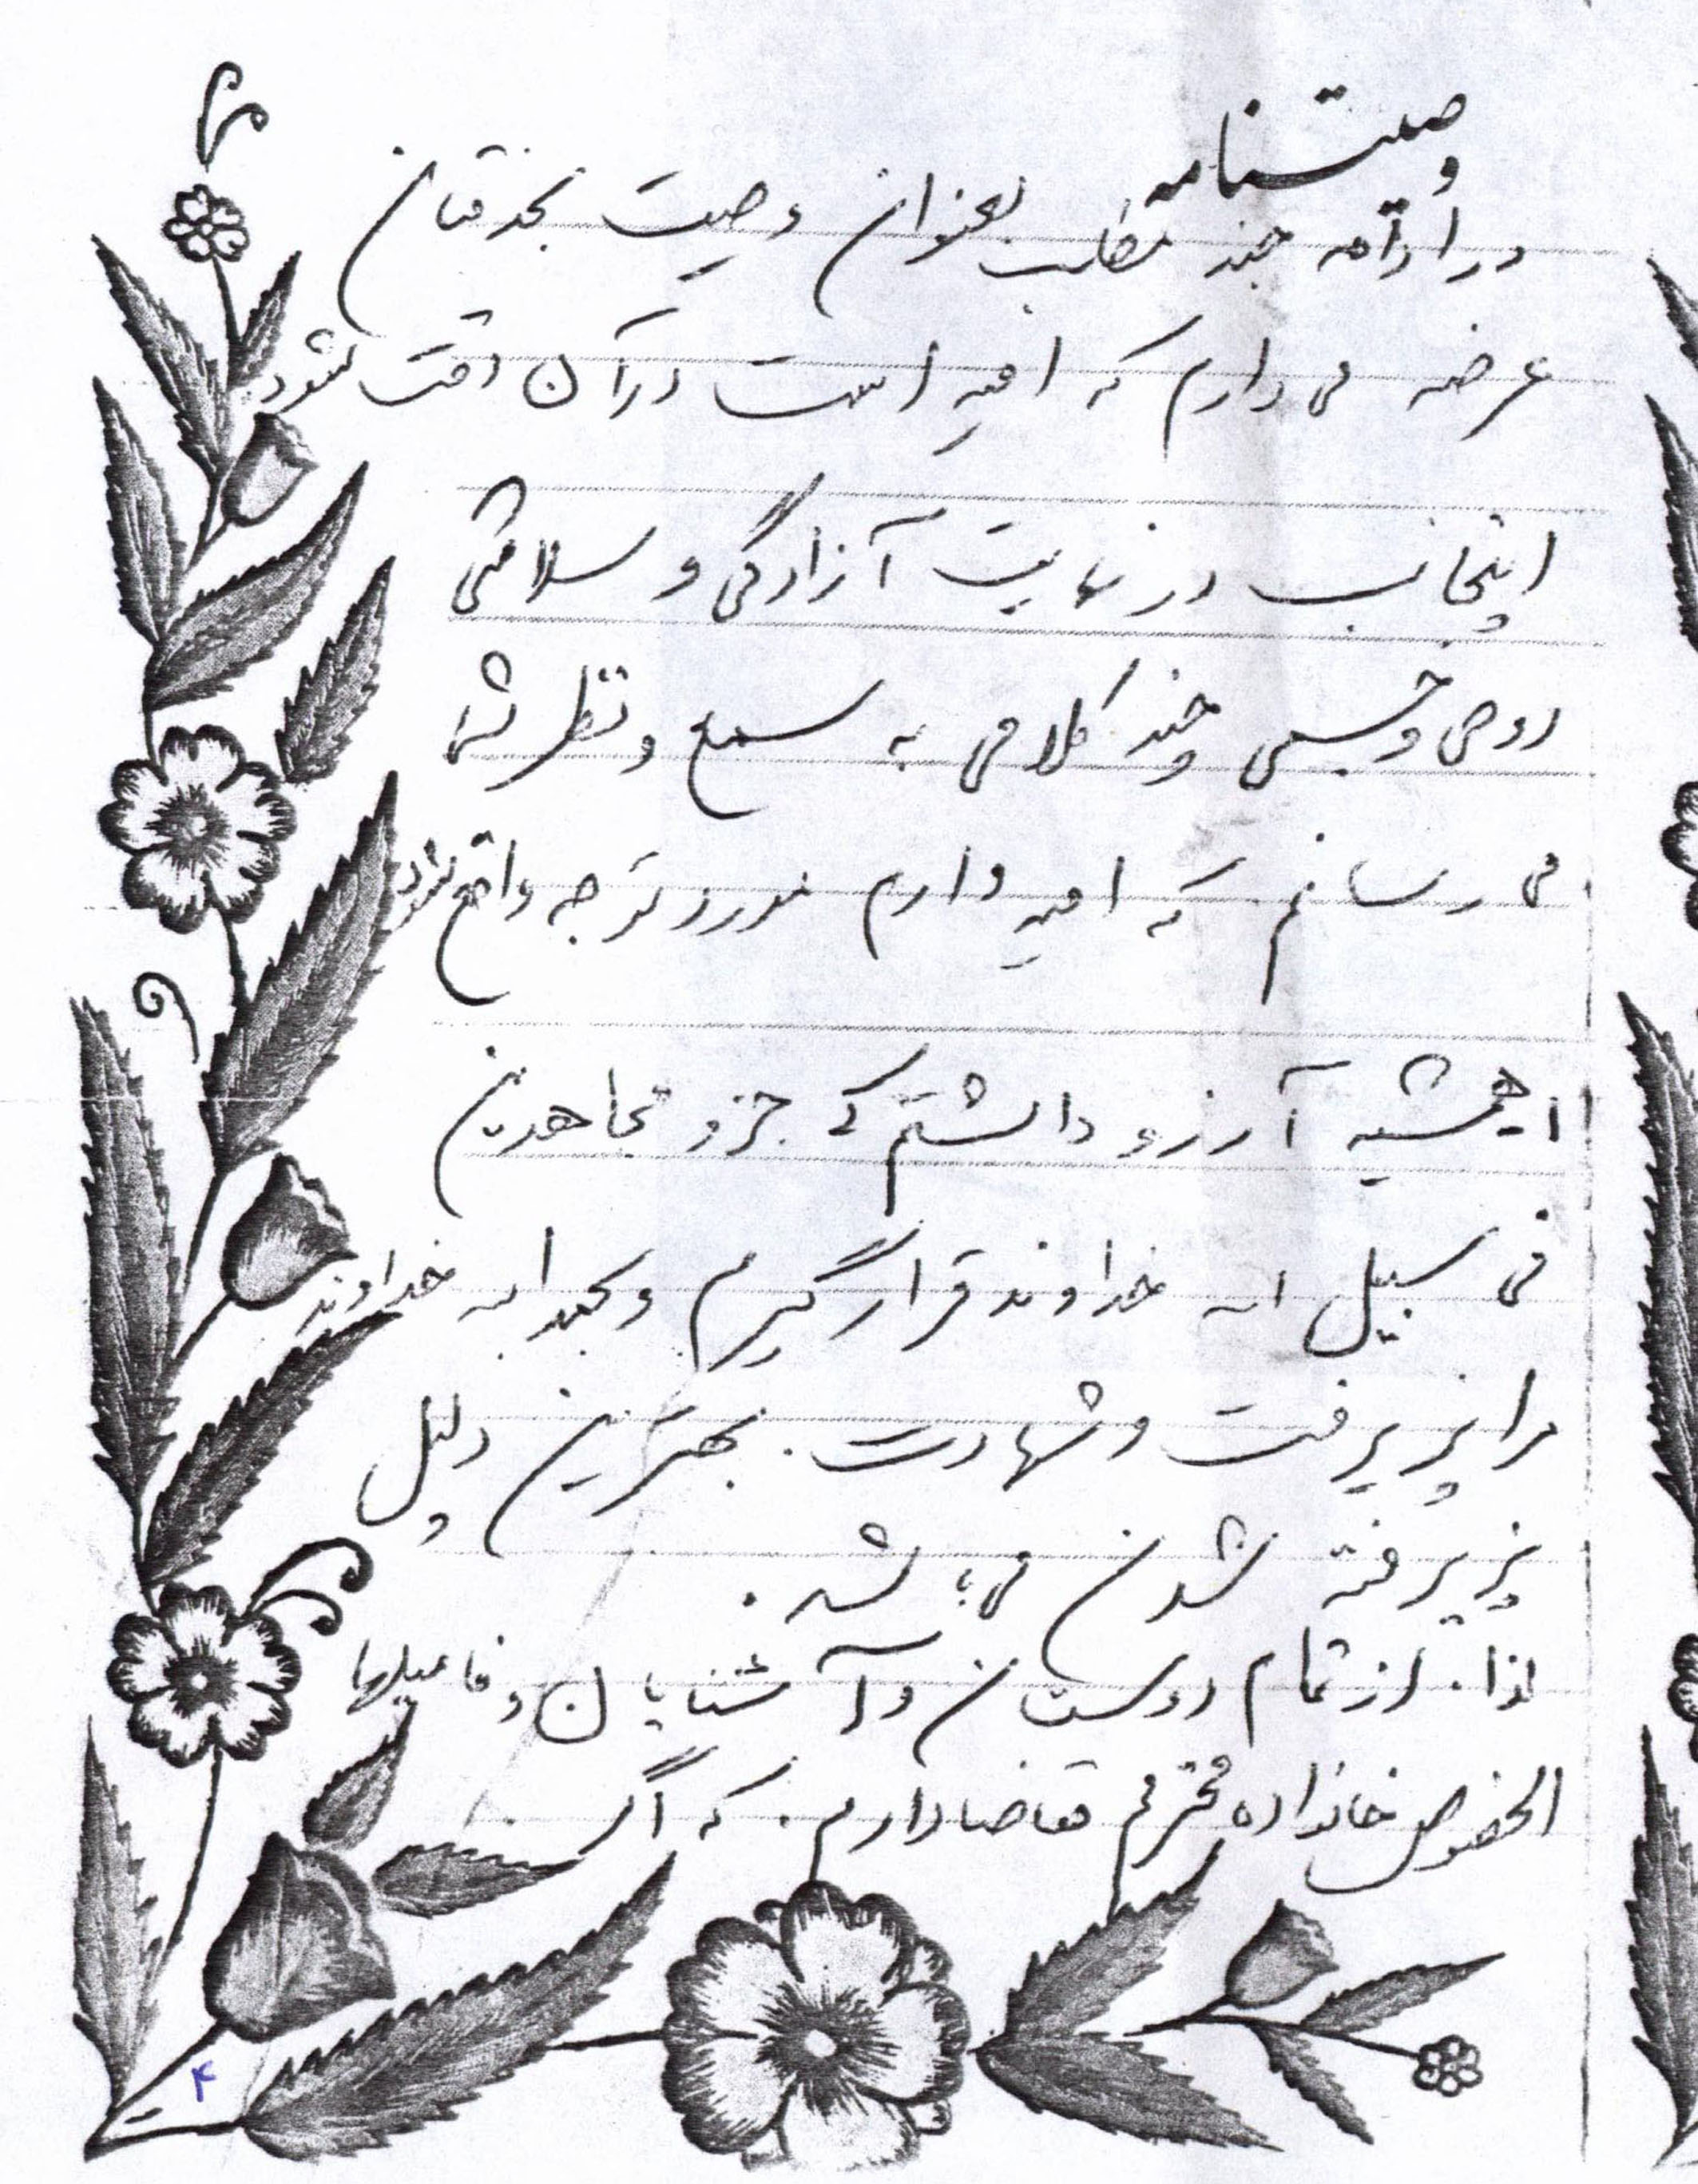 وصیتنامه
در ادامه چند مطلب بعنوان وصیت بخدمتان
عرضه می دارم که امید است در آن دقت بشود.
اینجانب در نهایت آزادگی و سلامتی
روحی و جسمی و چند کلامی به سمع و نظر شما
می رسانم که امید دارم مورد توجه واقع شود
همیشه آرزو داشتم که جزو مجاهدین
فی سبیل اله خداوند قرار گیرم و بحمد اله خداوند
مرا پذیرفت و شهادت. بهترین دلیل
پذیرفته شدن می باشد.
لذا. از تمام دوستان و آشنایان و فامیلها
الخصوص خانواده محترم تقاضا دارم. که اگر
۴